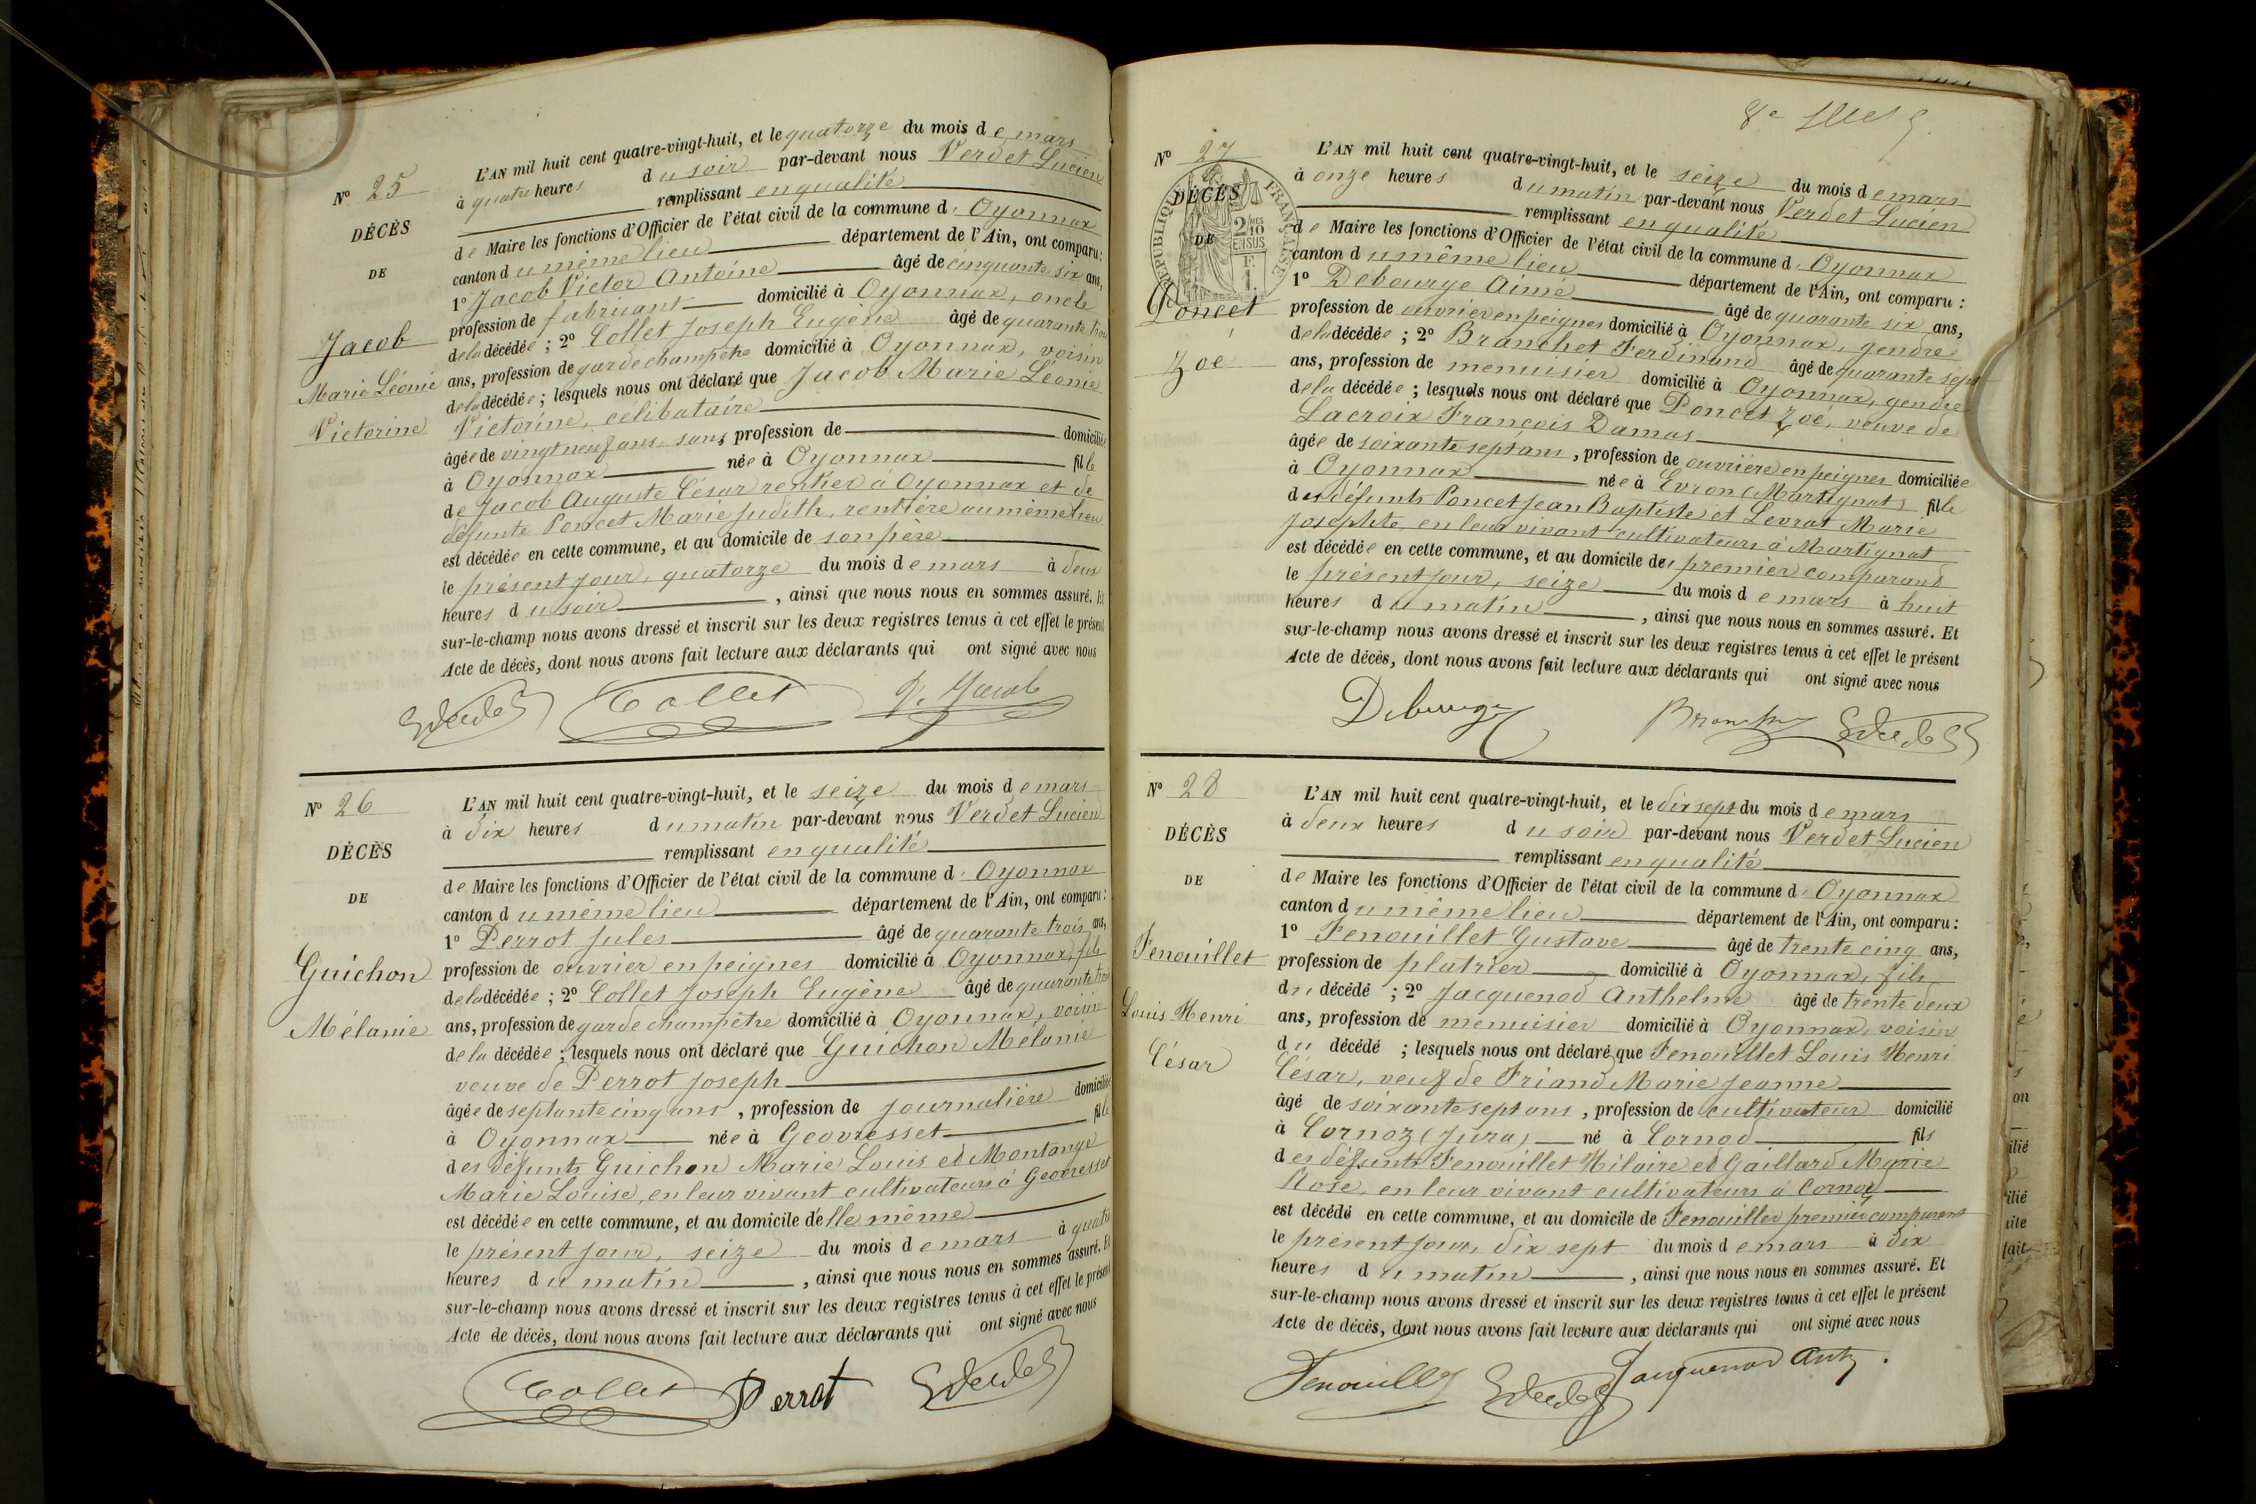 N° 25
DÉCÈS
DE
Jacob
Marie Léonie
Victorine
L'AN mil huit cent quatre-vingt-huit, et le quatorze du mois de mars
à quatre heures du soir par-devant nous Verdet Lucien
remplissant en qualité
de Maire les fonctions d'Officier de l'état civil de la commune d'Oyonnax
canton du même lieu département de l'Ain, ont comparu :
1° Jacob Victor Antoine âgé de cinquante six ans,
profession de fabricant domicilié à Oyonnax, oncle
de la décédée ; 2° Collet Joseph Eugène âgé de quarante trois
ans, profession de garde champêtre domicilié à Oyonnax, voisin
de la décédée ; lesquels nous ont déclaré que Jacob Marie Léonie
Victorine, célibataire
âgée de vingt neuf ans sans profession de domiciliée
à Oyonnax née à Oyonnax fille
de Jacob Auguste César rentier à Oyonnax et de
défunte Poncet Marie Judith, rentière au même lieu
est décédée en cette commune, et au domicile de son père
le présent jour, quatorze du mois de mars à deux
heures du soir, ainsi que nous nous en sommes assuré. Et
sur-le-champ nous avons dressé et inscrit sur les deux registres tenus à cet effet le présent
Acte de décès, dont nous avons fait lecture aux déclarants qui ont signé avec nous
Collet V. Jacob
N° 26
DÉCÈS
DE
Guichon
Mélanie
L'AN mil huit cent quatre-vingt-huit, et le seize du mois de mars
à dix heures du matin par-devant nous Verdet Lucien
remplissant en qualité
de Maire les fonctions d'Officier de l'état civil de la commune d'Oyonnax
canton du même lieu département de l'Ain, ont comparu :
1° Perrot Jules âgé de quarante trois ans,
profession de ouvrier en peignes domicilié à Oyonnax, fils
de la décédée ; 2° Collet Joseph Eugène âgé de quarante trois
ans, profession de garde champêtre domicilié à Oyonnax, voisin
de la décédée ; lesquels nous ont déclaré que Guichon Mélanie
veuve de Perrot Joseph
âgée de septante cinq ans, profession de journalière domiciliée
à Oyonnax née à Geovresset fille
des défunts Guichon Marie Louis et Montange
Marie Louise, en leur vivant cultivateurs à Geovresset
est décédée en cette commune, et au domicile d'elle même
le présent jour, seize du mois de mars à quatre
heures du matin, ainsi que nous nous en sommes assuré. Et
sur-le-champ nous avons dressé et inscrit sur les deux registres tenus à cet effet le présent
Acte de décès, dont nous avons fait lecture aux déclarants qui ont signé avec nous
Collet Perrot
N° 27
DÉCÈS
DE
Poncet
Zoé
RÉPUBLIQUE FRANÇAISE
2/10 EN SUS
L'AN mil huit cent quatre-vingt-huit, et le seize du mois de mars
à onze heures du matin par-devant nous Verdet Lucien
remplissant en qualité
de Maire les fonctions d'Officier de l'état civil de la commune d'Oyonnax
canton du même lieu département de l'Ain, ont comparu :
1° Debourge Aimé âgé de quarante six ans,
profession de ouvrier en peignes domicilié à Oyonnax, gendre
de la décédée ; 2° Branchet Ferdinand âgé de quarante sept
ans, profession de menuisier domicilié à Oyonnax, gendre
de la décédée ; lesquels nous ont déclaré que Poncet Zoé, veuve de
Lacroix François Damas
âgée de soixante sept ans, profession de ouvrière en peignes domiciliée
à Oyonnax née à Evron (Martignat) fille
des défunts Poncet Jean Baptiste et Levrat Marie
Josephte, en leur vivant cultivateurs à Martignat
est décédée en cette commune, et au domicile de premier comparant
le présent jour, seize du mois de mars à huit
heures du matin, ainsi que nous nous en sommes assuré. Et
sur-le-champ nous avons dressé et inscrit sur les deux registres tenus à cet effet le présent
Acte de décès, dont nous avons fait lecture aux déclarants qui ont signé avec nous
N° 28
DÉCÈS
DE
Fenouillet
Louis Henri
César
L'AN mil huit cent quatre-vingt-huit, et le dix sept du mois de mars
à deux heures du soir par-devant nous Verdet Lucien
remplissant en qualité
de Maire les fonctions d'Officier de l'état civil de la commune d'Oyonnax
canton du même lieu département de l'Ain, ont comparu :
1° Fenouillet Gustave âgé de trente cinq ans,
profession de platrier domicilié à Oyonnax, fils
du décédé ; 2° Jacquenod Anthelme âgé de trente deux
ans, profession de menuisier domicilié à Oyonnax, voisin
du décédé ; lesquels nous ont déclaré que Fenouillet Louis Henri
César, veuf de Friand Marie Jeanne
âgé de soixante sept ans, profession de cultivateur domicilié
à Cornoz (Jura) né à Cornod fils
des défunts Fenouillet Hilaire et Gaillard Marie
Rose, en leur vivant cultivateurs à Cornoz
est décédé en cette commune, et au domicile de Fenouillet premier comparant
le présent jour, dix sept du mois de mars à dix
heures du matin, ainsi que nous nous en sommes assuré. Et
sur-le-champ nous avons dressé et inscrit sur les deux registres tenus à cet effet le présent
Acte de décès, dont nous avons fait lecture aux déclarants qui ont signé avec nous
Jacquenod Anth